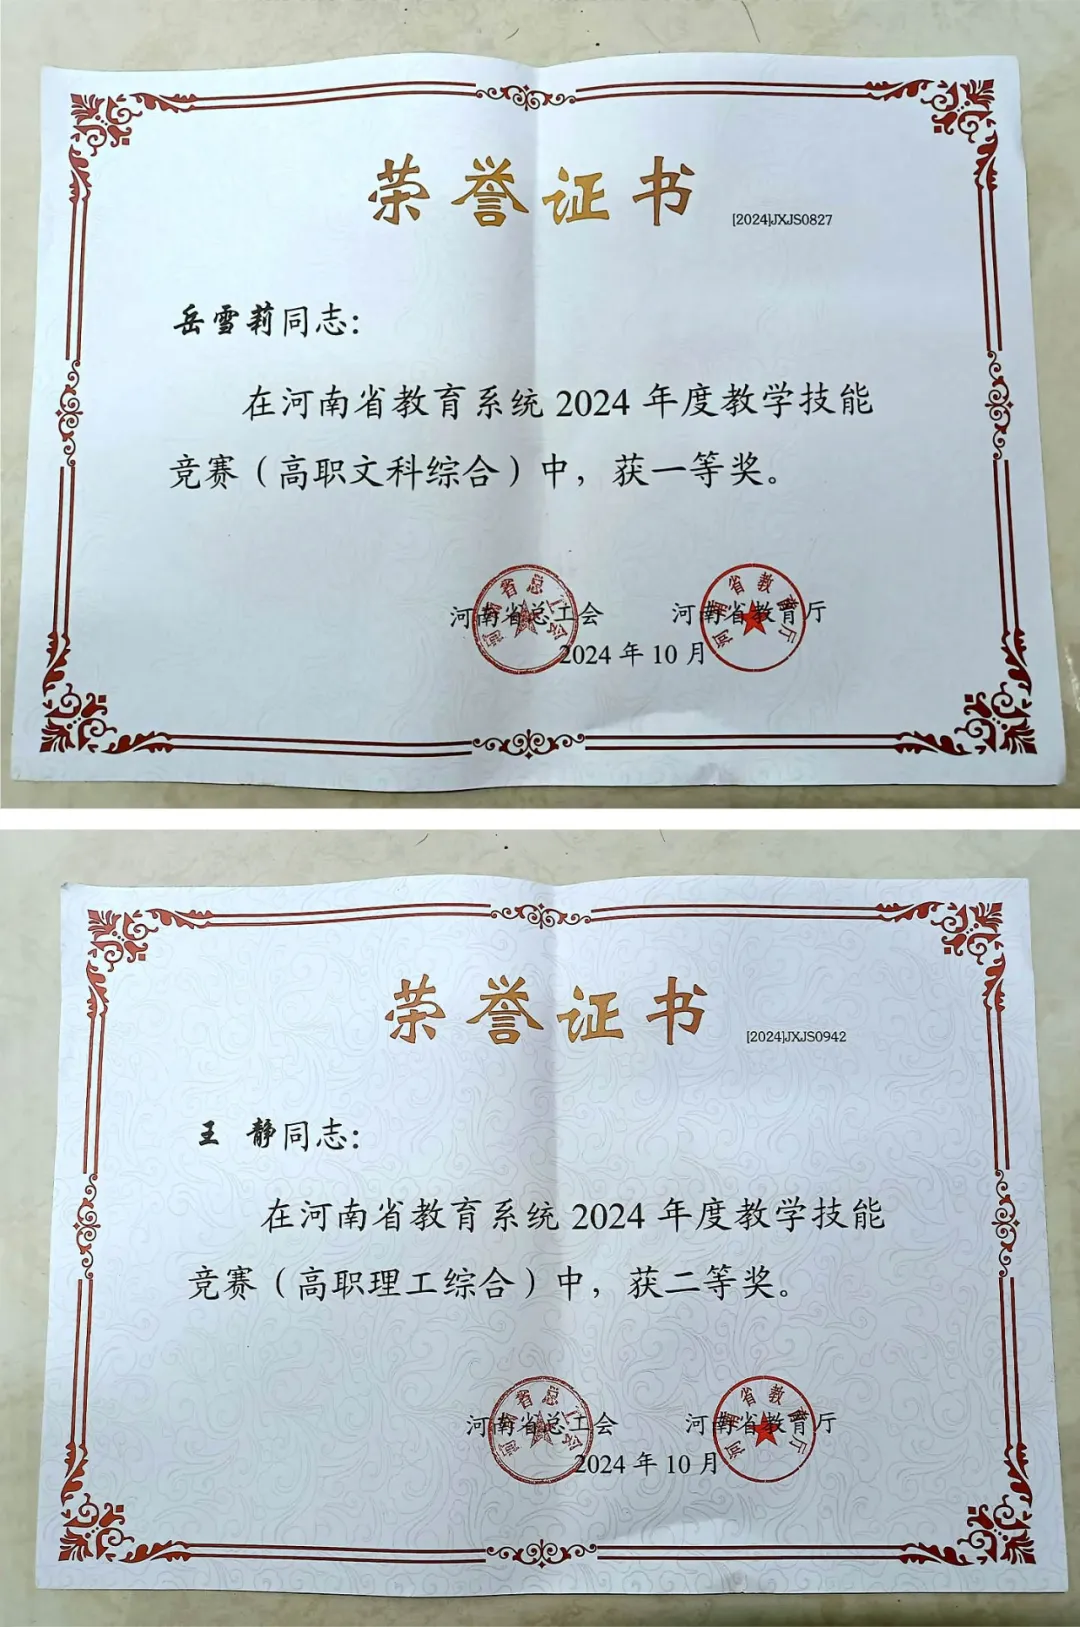 荣誉证书
[2024]JXJS0827
岳雪莉同志：
在河南省教育系统 2024 年度教学技能
竞赛（高职文科综合）中，获一等奖。
河南省总工会 河南省教育厅
2024 年 10 月
荣誉证书
[2024]JXJS0942
王 静同志：
在河南省教育系统 2024 年度教学技能
竞赛（高职理工综合）中，获二等奖。
河南省总工会 河南省教育厅
2024 年 10 月